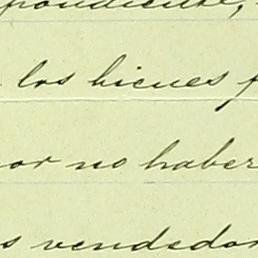 pondiente,
los bienes f
or no haber
s vendedor